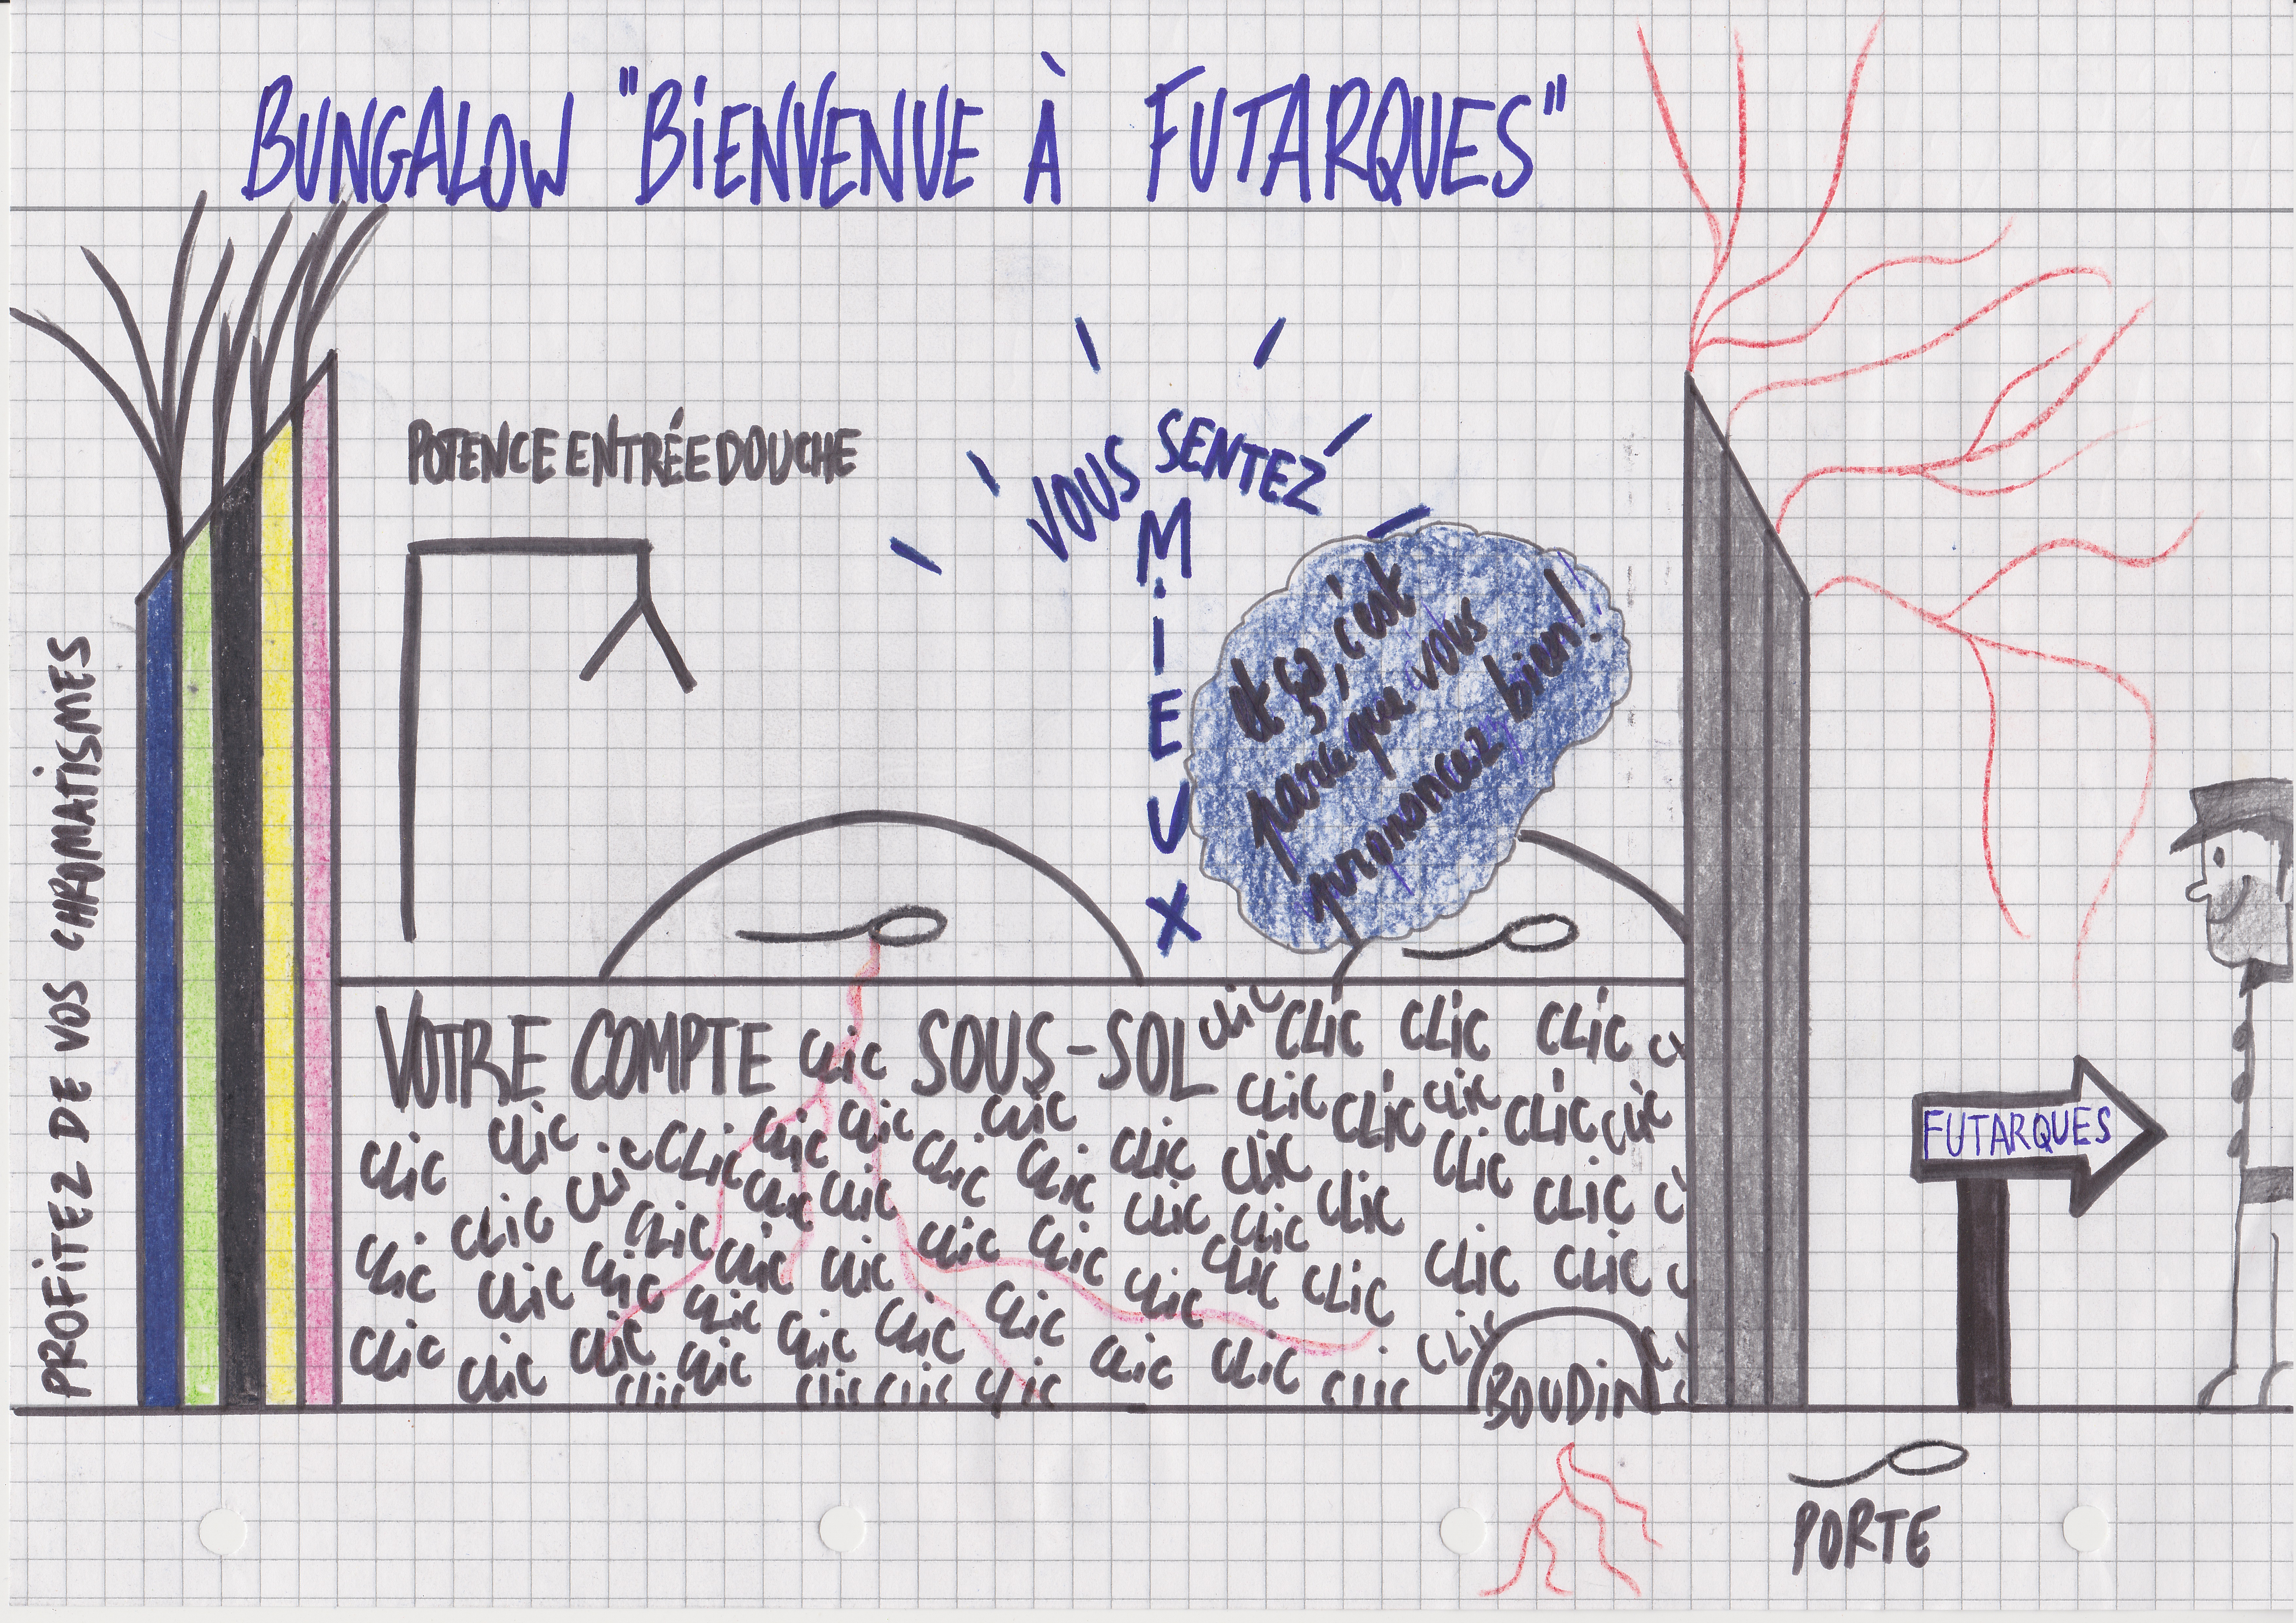 BUNGALOW "BIENVENUE À FUTARQUES"
POTENCE ENTRÉE DOUCHE
VOUS SENTEZ
MIEUX
et ça, c'est
parce que vous
prononcez bien!
PROFITEZ DE VOS CHROMATISMES
VOTRE COMPTE CLIC SOUS-SOL CLIC CLIC CLIC CLIC
CLIC CLIC CLIC CLIC CLIC
CLIC CLIC CLIC CLIC CLIC CLIC CLIC CLIC CLIC CLIC CLIC CLIC
CLIC CLIC CLIC CLIC CLIC CLIC CLIC CLIC CLIC
CLIC CLIC CLIC CLIC CLIC CLIC CLIC CLIC CLIC CLIC CLIC
CLIC CLIC CLIC CLIC CLIC CLIC CLIC CLIC
CLIC CLIC CLIC CLIC CLIC CLIC CLIC CLIC
CLIC CLIC CLIC CLIC CLIC
BOUDIN
FUTARQUES
PORTE